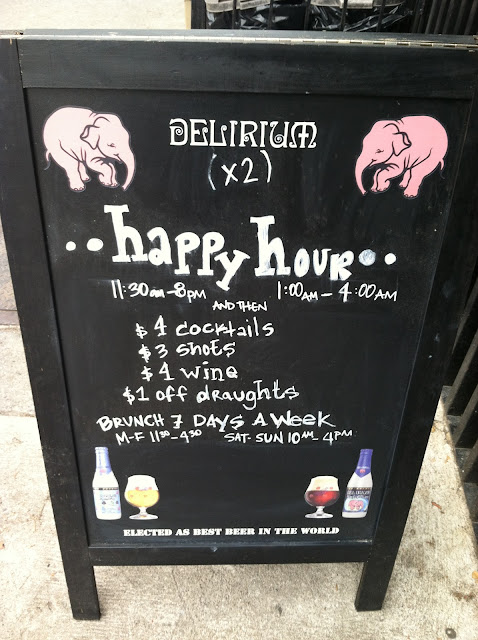 DELIRIUM
(x2)
happy hour
11:30am-8pm 1:00AM - 4:00AM
AND THEN
$4 cocktails
$3 shots
$4 wine
$1 off draughts
BRUNCH 7 DAYS A WEEK
M-F 11:30-4:30 SAT-SUN 10AM-4PM
ELECTED AS BEST BEER IN THE WORLD